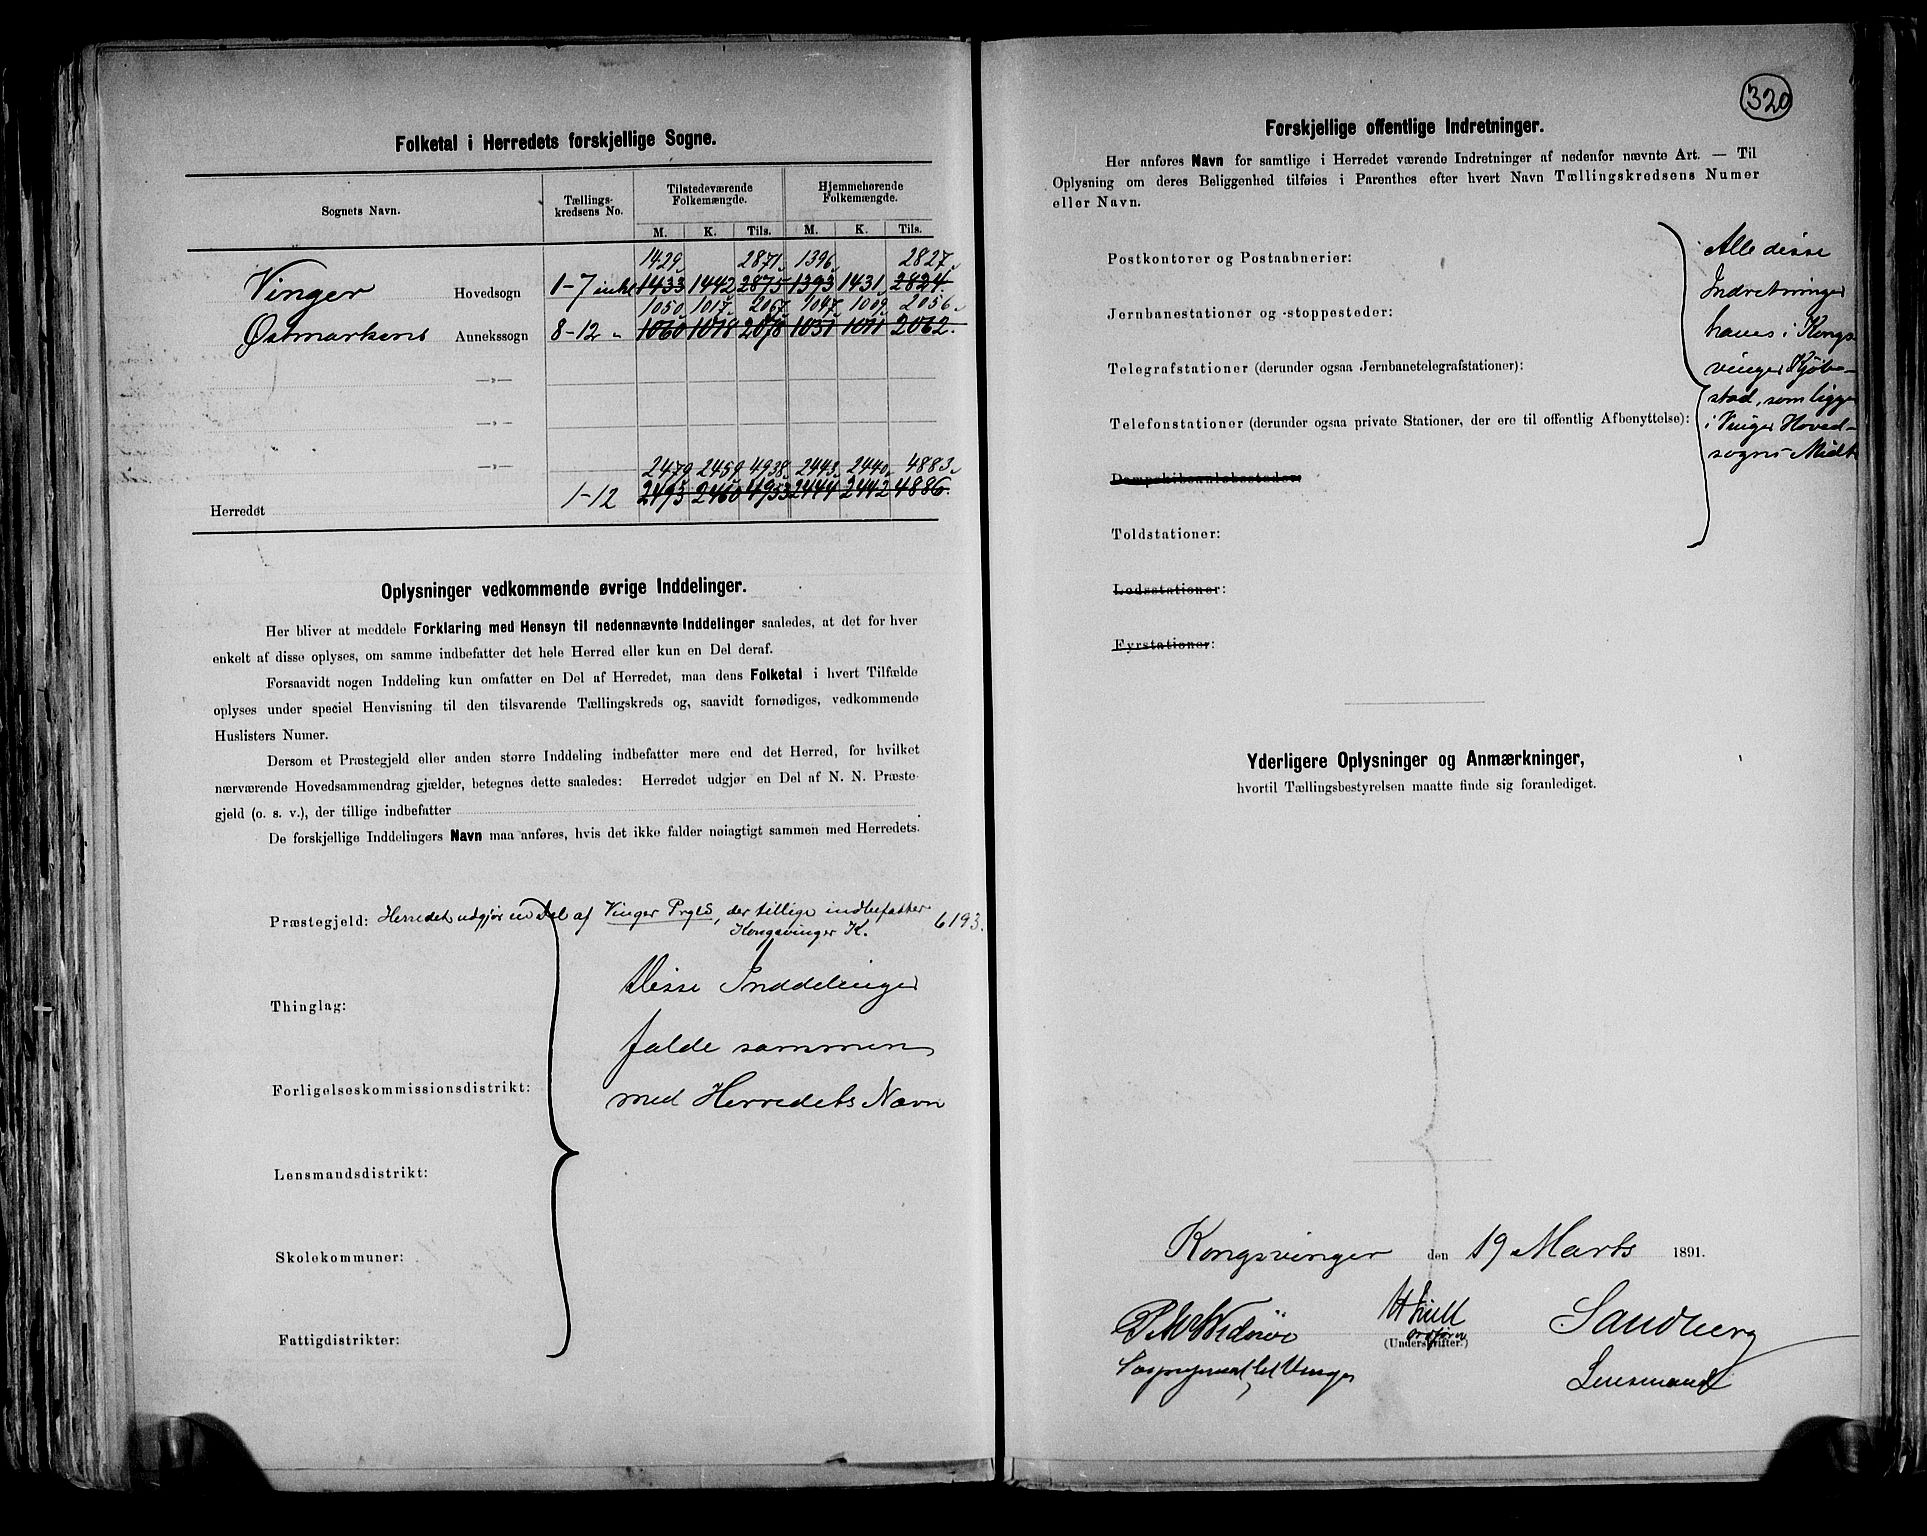 Folketal i Herredets forskjellige Sogne.
Sognets Navn.
Tællings-
kredsens No.
Tilstedeværende
Folkemængde.
Hjemmehørende
Folkemængde.
M. K. Tils. M. K. Tils.
1429 2871 1396 2827
Vinger Hovedsogn 1-7 inkl 1433 1442 2875 1393 1431 2824
1050 1017 2067 1047 1009 2056
Østmarkens Annekssogn 8-12 " 1060 1018 2078 1051 1011 2062.
—„—
—„—
—„—
2479 2459 4938 2443 2440 4883
Herredet 1-12 2493 2460 4953 2444 2442 4886.
Oplysninger vedkommende øvrige Inddelinger.
Her bliver at meddele Forklaring med Hensyn til nedennævnte Inddelinger saaledes, at det for hver
enkelt af disse oplyses, om samme indbefatter det hele Herred eller kun en Del deraf.
Forsaavidt nogen Inddeling kun omfatter en Del af Herredet, maa dens Folketal i hvert Tilfælde
oplyses under speciel Henvisning til den tilsvarende Tællingskreds og, saavidt fornødiges, vedkommende
Huslisters Numer.
Dersom et Præstegjeld eller anden større Inddeling indbefatter mere end det Herred, for hvilket
nærværende Hovedsammendrag gjælder, betegnes dette saaledes: Herredet udgjør en Del af N. N. Præste-
gjeld (o. s. v.), der tillige indbefatter
De forskjellige Inddelingers Navn maa anføres, hvis det ikke falder nøiagtigt sammen med Herredets.
Præstegjeld: Herredet udgjør en Del af Vinger Prgld, der tillige indbefatter 6193.
Kongsvinger K.
Disse Inddelinger
Thinglag:
falde sammen
Forligelseskommissionsdistrikt:
med Herredets Navn
Lensmandsdistrikt:
Skolekommuner:
Fattigdistrikter:
320
Forskjellige offentlige Indretninger.
Her anføres Navn for samtlige i Herredet værende Indretninger af nedenfor nævnte Art. — Til
Oplysning om deres Beliggenhed tilføies i Parenthes efter hvert Navn Tællingskredsens Numer
eller Navn.
Postkontorer og Postaabnerier:
Jernbanestationer og -stoppesteder:
Telegrafstationer (derunder ogsaa Jernbanetelegrafstationer):
Telefonstationer (derunder ogsaa private Stationer, der ere til offentlig Afbenyttelse):
Dampskibsanløbssteder:
Toldstationer:
Lodsstationer:
Fyrstationer:
Alle disse
Indretninger
haves i Kongs-
vinger Kjøb-
stad, som ligger
i Vinger Hoved-
sogns Midt
Yderligere Oplysninger og Anmærkninger,
hvortil Tællingsbestyrelsen maatte finde sig foranlediget.
Kongsvinger den 19 Marts 1891.
Sandberg
(Underskrifter.)
Lensmand